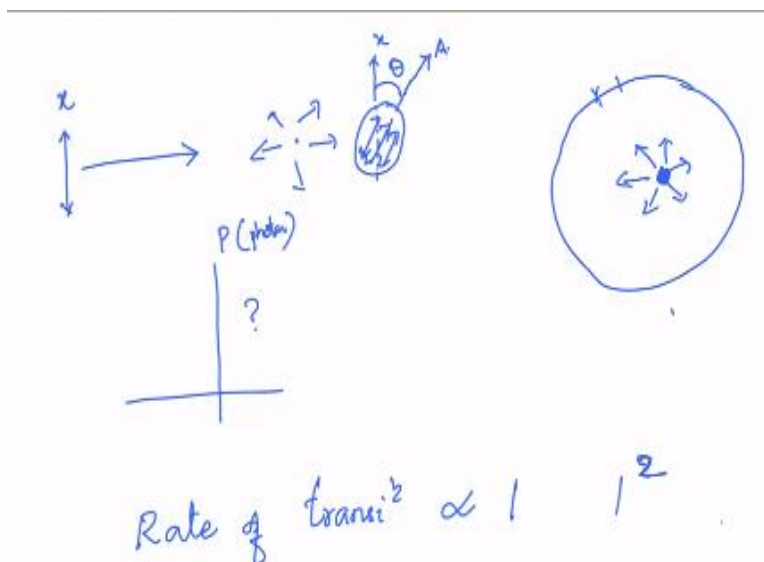 x
x
θ
A
P(photon)
?
Rate of transiⁿ ∝ | |²